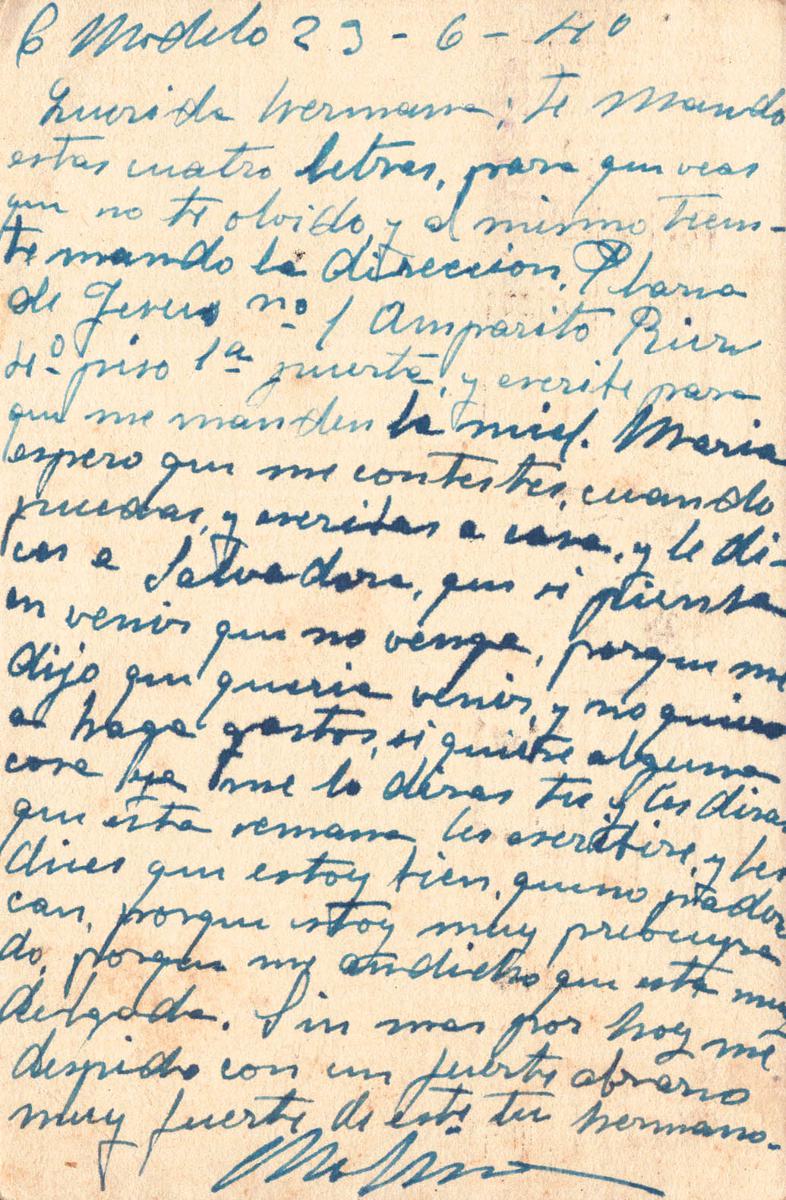 C Modelo 23 - 6 - 40
Querida hermana; te mando
estas cuatro letras, para que veas
que no te olvido, y al mismo tiem-
te mando la direccion,
de nº 1 Amparito
4º piso 1ª puerta, y escribe para
que me manden la miel. Maria
espero que me contestes, cuando
puedas, y escribas a casa, y le di-
ces a Salvadora, que si piensa
en venir que no venga, porque me
dijo que queria venir, y no quiero
a haga gastos, si quiere alguna
cosa ya me lo diras tu y les diras
que esta semana les escribire, y les
dices que estoy bien, que no padez
can, porque estoy muy preocupa
do, porque me andicho que esta muy
delgada. Sin mas por hoy me
despido con un fuerte abrazo
muy fuerte de este tu hermano.